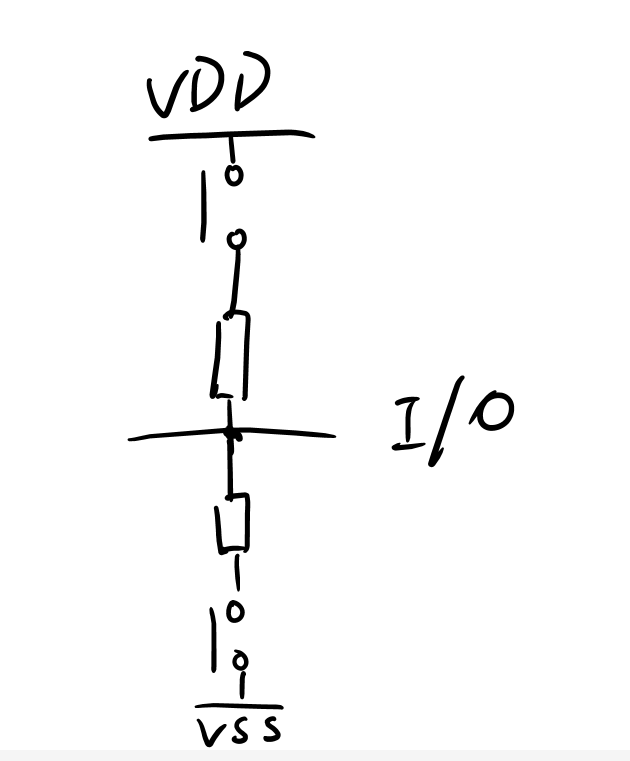 VDD
I/O
VSS